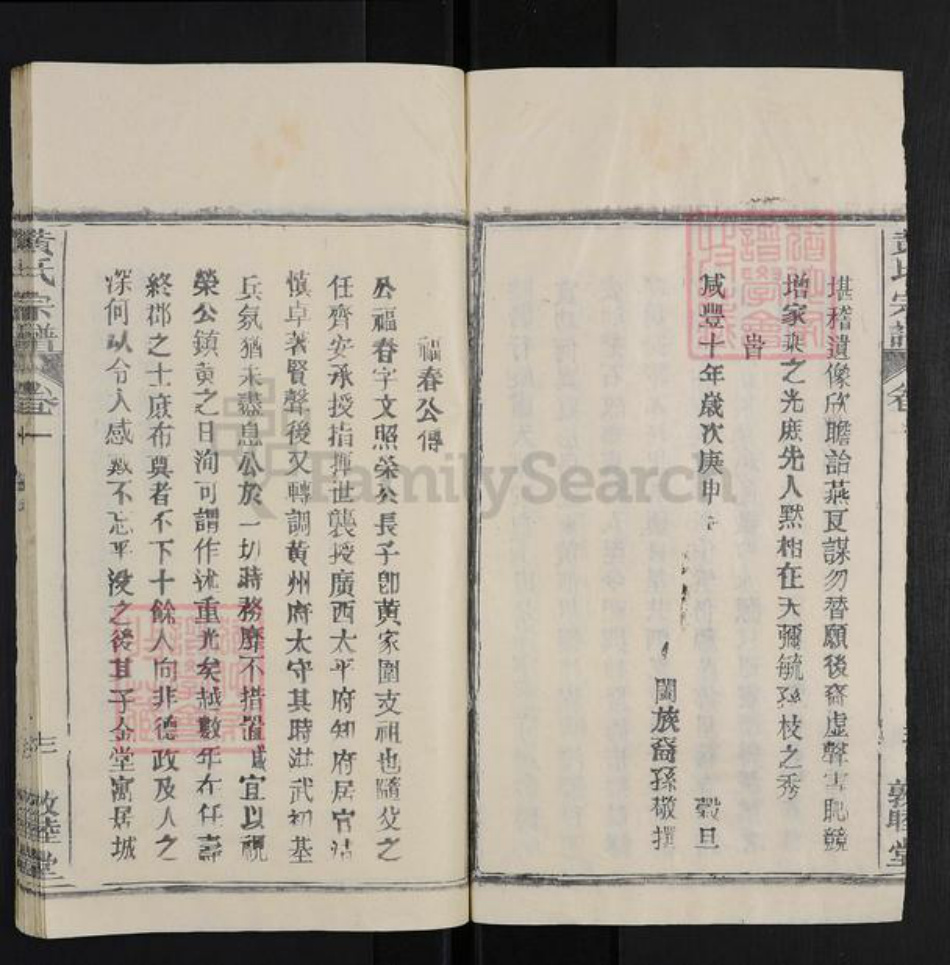 堪稽遺像欣瞻詒燕瓦謀勿替願後裔虛聲害恥競
增家乘之光庶先人默相在天彌毓孫枝之秀
旹
咸豐十年歲次庚申 穀旦
闔族裔孫敬撰
黃氏宗譜 卷一 敦睦堂
福春公傳
公福春字文照榮公長子卽黃家圍支祖也隨父之
任齊安承授指揮世襲授廣西太平府知府居官
慎卓著賢聲後又轉調黃州府太守其時洪武初基
兵氛猶未盡息公於一切時務靡不措置咸宜以視
榮公鎮黃之日洵可謂作述重光矣越數年在任壽
終郡之士庶布奠者不下十餘人向非德政及人之
深何以令人感戴不忘乎沒之後其子金堂寓居城
黃氏宗譜 卷一 敦睦堂
FamilySearch